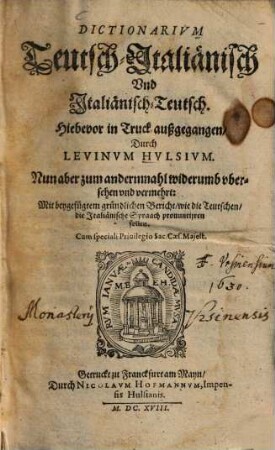 DICTIONARIVM
Teutsch-Italiänisch
Vnd
Italiänisch-Teutsch.
Hiebevor in Truck außgegangen/
Durch
LEVINVM HVLSIVM.
Nun aber zum andernmahl widerumb vber-
sehen vnd vermehrt:
Mit beygefügtem gründlichen Bericht/ wie die Teutschen/
die Italiänische Spraach pronuncijren
sollen.
Cum speciali Privilegio Sac. Cæs. Majest.
1630.
Monasterij
Vrsinensis
Getruckt zu Franckfurt am Mayn/
Durch NICOLAVM HOFMANNVM, Impen-
sis Hulsianis.
M. DC. XVIII.